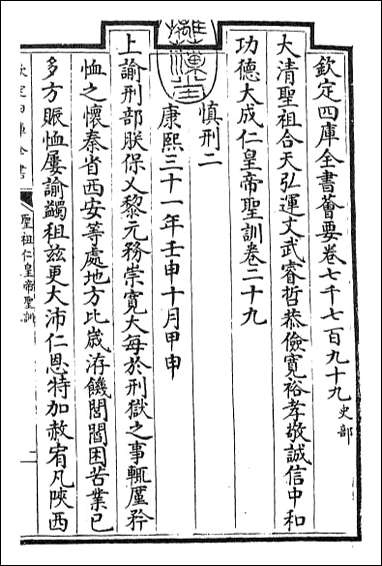 欽定四庫全書薈要卷七千七百九十九 史部
大清聖祖合天弘運文武睿哲恭儉寬裕孝敬誠信中和
功德大成仁皇帝聖訓卷二十九
慎刑二
康熙三十一年壬申十月甲申
上諭刑部朕保乂黎元務崇寬大每於刑獄之事輒厪矜
恤之懷秦省西安等處地方比歲洊饑閭閻困苦業已
多方賑恤屢諭蠲租兹更大沛仁恩特加赦宥凡陝西
欽定四庫全書
聖祖仁皇帝聖訓